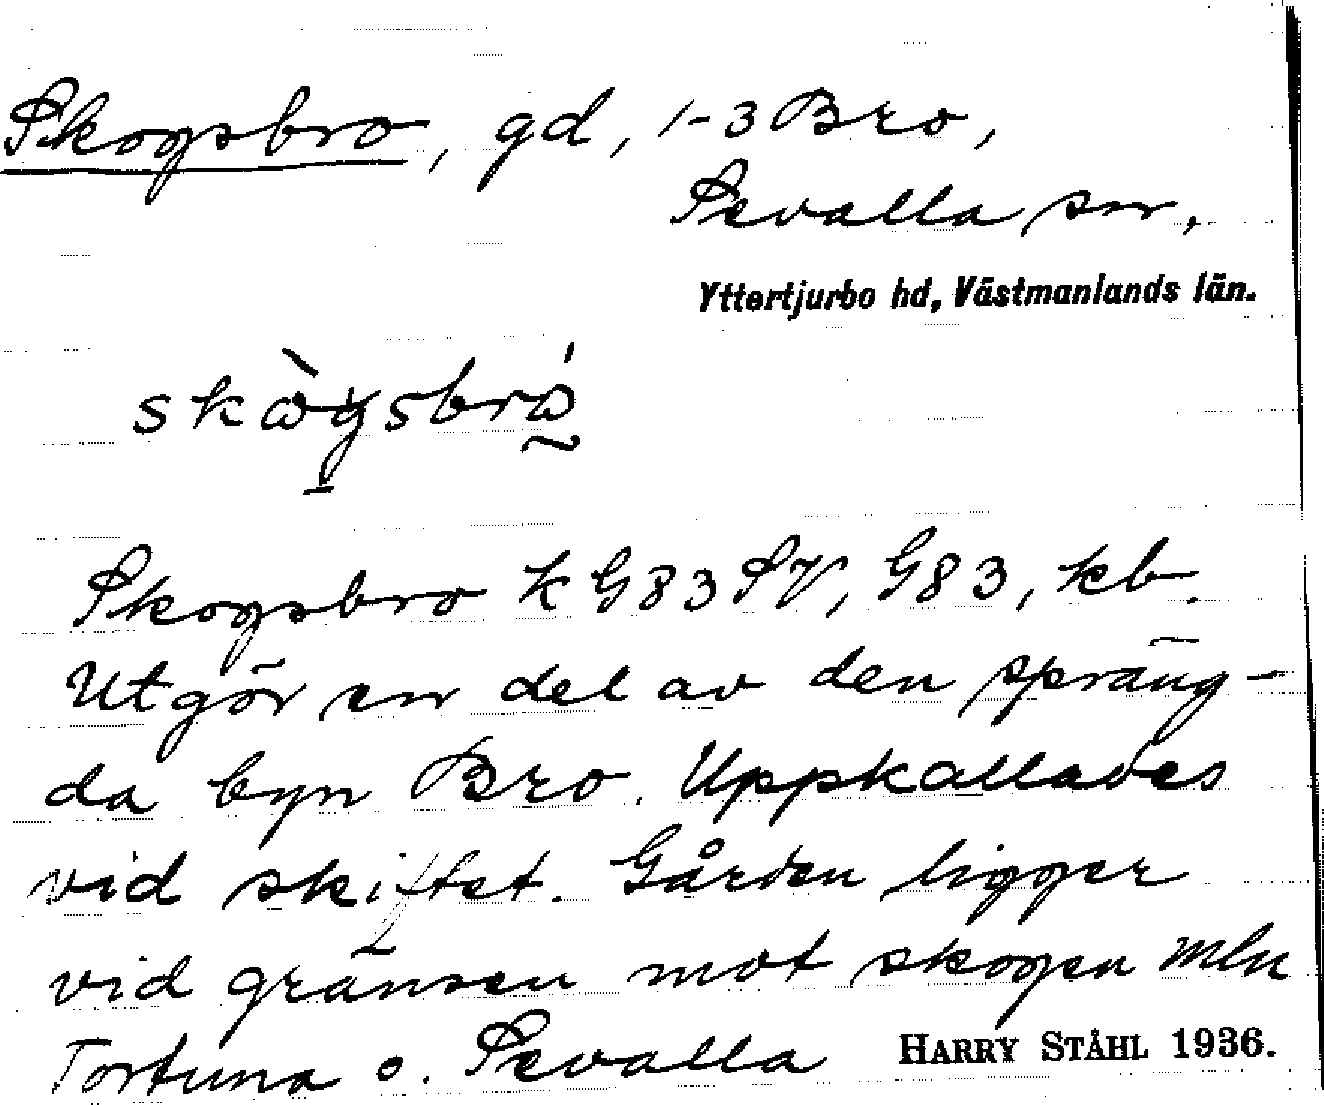 Skogsbro, gd, 1-3 Bro,
Sevalla sn,
Yttertjurbo hd, Västmanlands län.
skògsbró
Skogsbro k G83 SV, G83, kb.
Utgör en del av den spräng-
da byn Bro. Uppkallades
vid skiftet. Gården ligger
vid gränsen mot skogen mln
Tortuna o. Sevalla
HARRY STÅHL 1936.